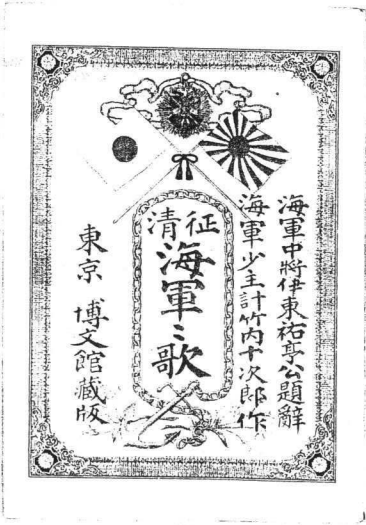 海軍中將伊東祐亨公題辭
海軍少主計竹内十次郎作
征清
海軍ミ歌
東京 博文館藏版